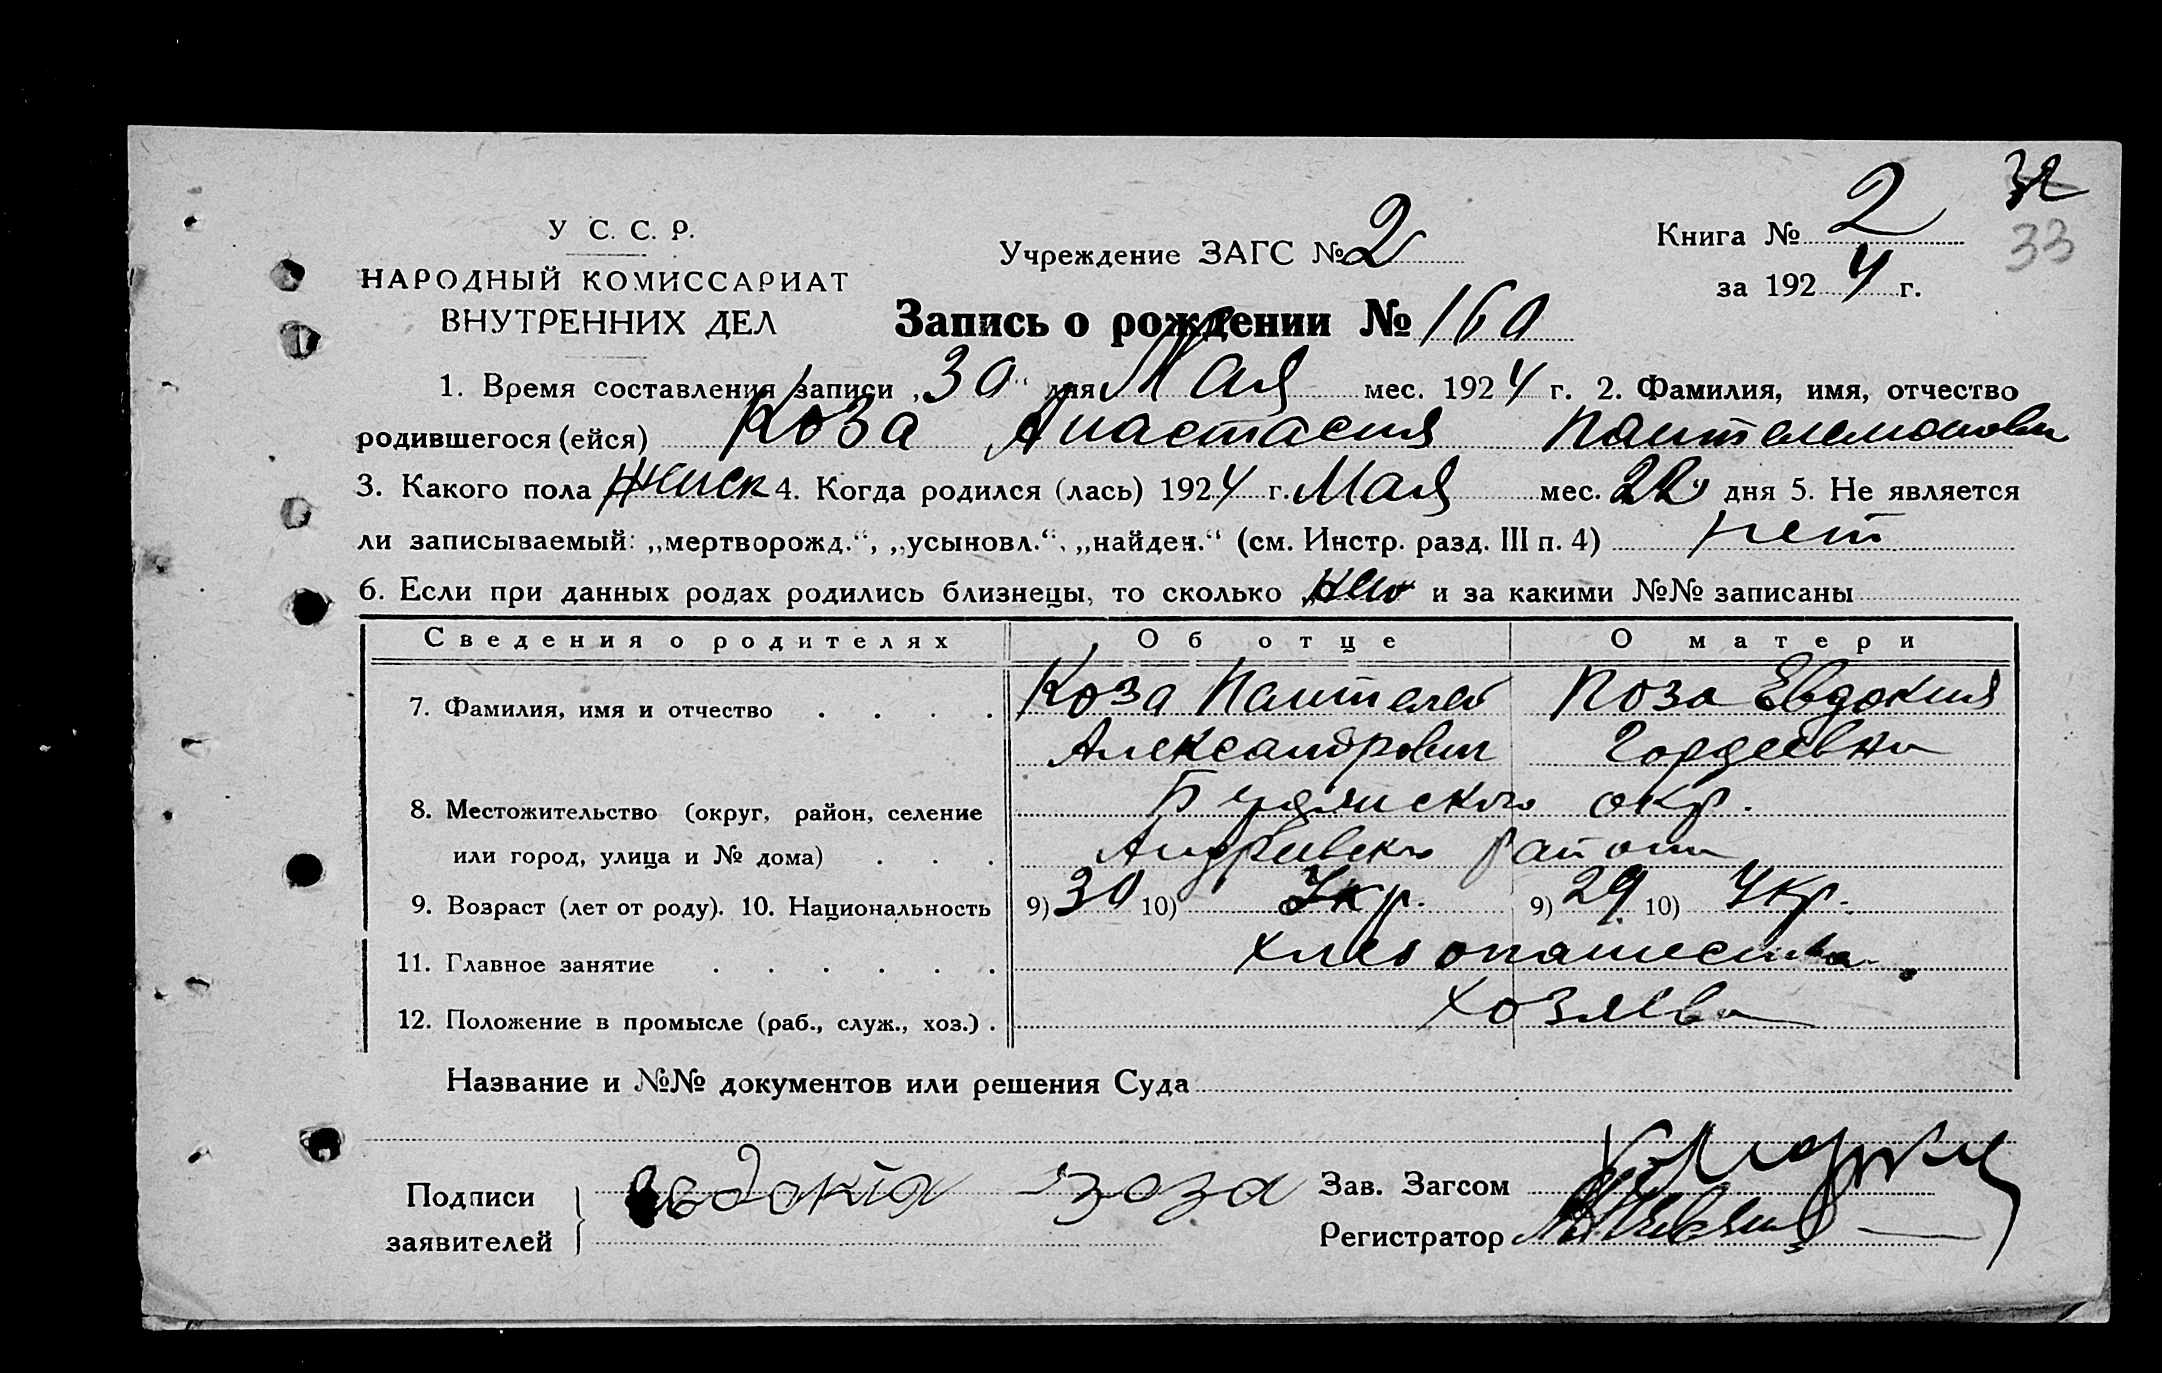 32
33
У С. С. Р.
НАРОДНЫЙ КОМИССАРИАТ
ВНУТРЕННИХ ДЕЛ
Учреждение ЗАГС № 2
Книга № 2
за 1924 г.
Запись о рождении № 160
1. Время составления записи „30“ дня Мая мес. 1924 г. 2. Фамилия, имя, отчество
родившегося (ейся) Коза Анастасия
3. Какого пола женск 4. Когда родился (лась) 1924 г. Мая мес. 22 дня 5. Не является
ли записываемый: „мертворожд.“, „усыновл.“, „найден.“ (см. Инстр. разд. III п. 4) нет
6. Если при данных родах родились близнецы, то сколько нет и за какими №№ записаны
Сведения о родителях Об отце О матери
7. Фамилия, имя и отчество . . . . Коза Пантелей Коза Евдокия
Александрович Гордеевна
8. Местожительство (округ, район, селение окр.
или город, улица и № дома) . . . Андреевского района
9. Возраст (лет от роду). 10. Национальность 9) 30 10) Укр. 9) 29 10) Укр.
11. Главное занятие . . . . . . хлебопашество
12. Положение в промысле (раб., служ., хоз.) . хозяева
Название и №№ документов или решения Суда
Подписи
заявителей
Евдокія Коза
Зав. Загсом
Регистратор